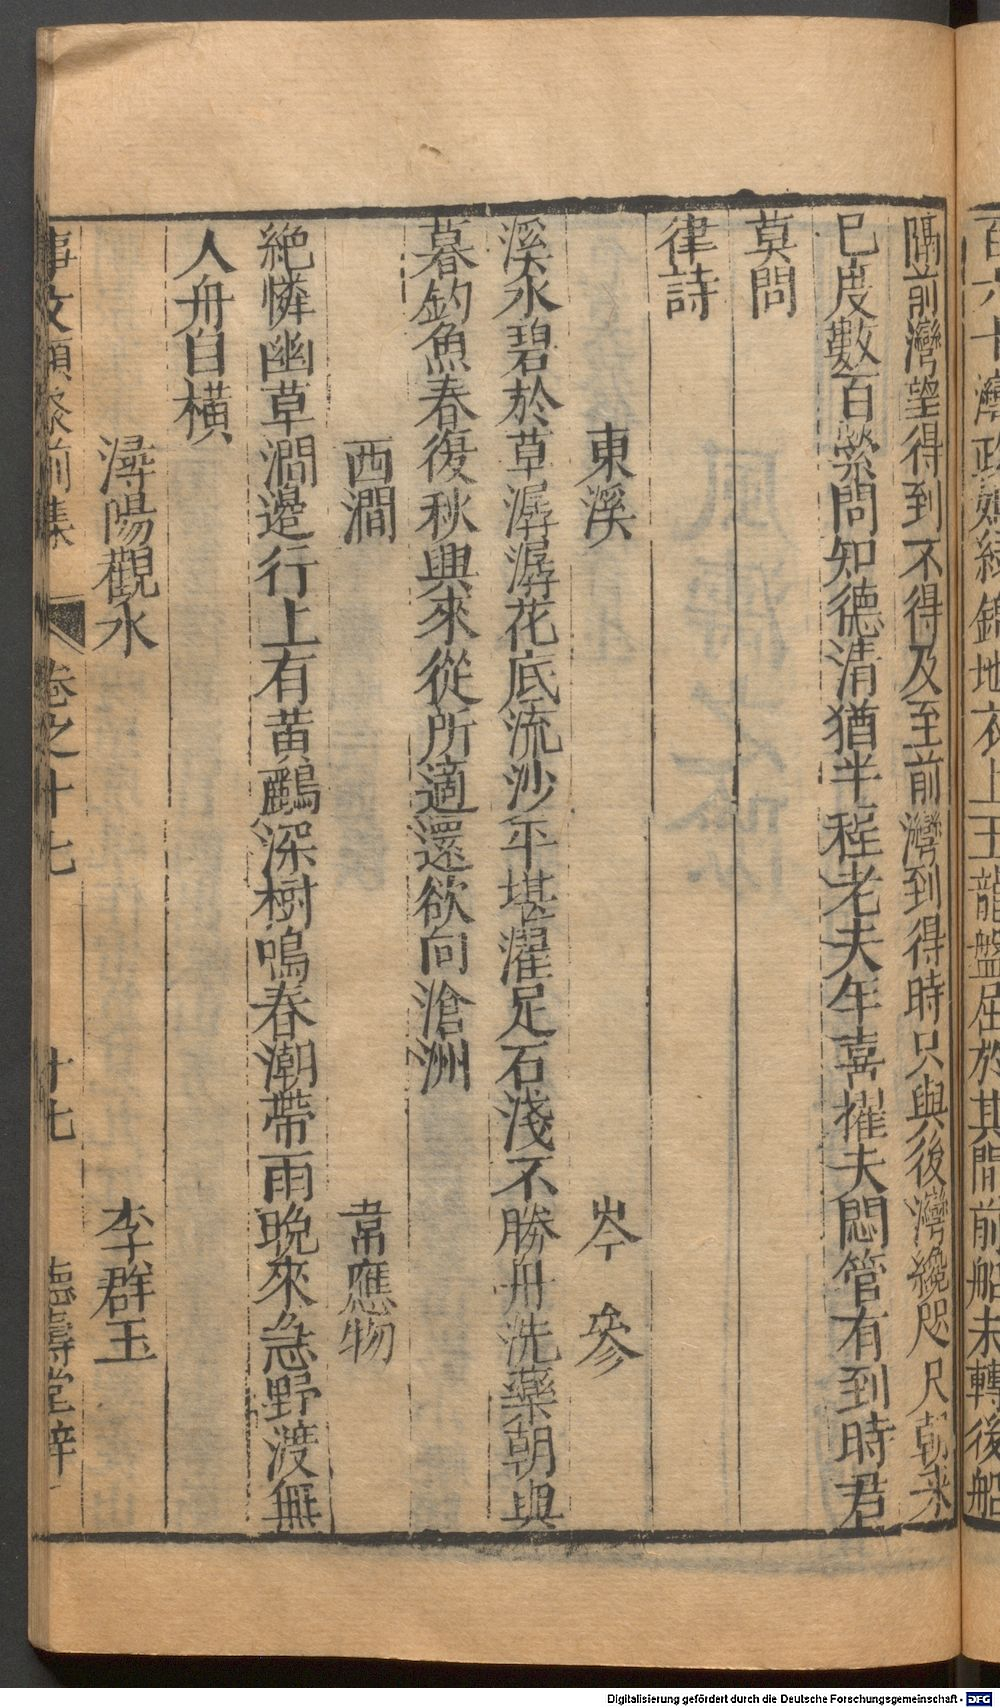 百六十灣政如綠錦地衣上玉龍盤屈於其間前船未轉後船
隔前灣望得到不得及至前灣到得時只與後灣纔咫尺朝來
已度數百縈問知德清猶半程老夫年喜摧夫悶管有到時君
莫問
律詩
東溪 岑參
溪水碧於草潺潺花底流沙平堪濯足石淺不勝舟洗藥朝與
暮釣魚春復秋興來從所適還欲向滄洲
西澗 韋應物
絶憐幽草澗邊行上有黃鸝深樹鳴春潮帶雨晚來急野渡無
人舟自橫
潯陽觀水 李群玉
事文類聚前集 卷之十七 十七 德壽堂梓
Digitalisierung gefördert durch die Deutsche Forschungsgemeinschaft - DFG